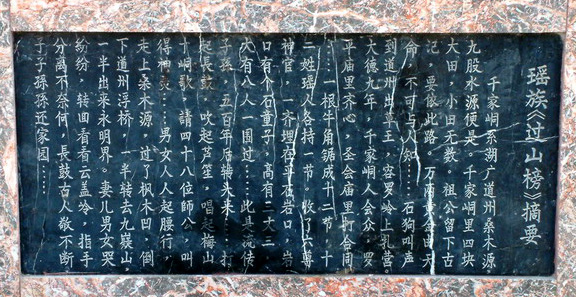 瑶族《过山榜》摘要
千家峒系湖广道州桑木源
九股水源便是。千家峒里四块
大田，小田无数。祖公留下古
记，要依此路，万
命，不可与人知……石狗叫声
到道州出草王，容罗岭上扎营。
大德九年，千家峒人会众，罗
平庙里齐心，圣会庙里折合同
……一根牛角锯成十二节，十
二姓瑶人各持一节。收了六尊
神官，一齐埋在平石岩口，岩
口有个石童子，高有二丈二
大有八人一围过……此是流传
子孙，五百年后转头来……打
起长鼓，吹起芦笙，唱起梅山
十峒歌，請四十八位師公，叫
得神灵……男女人人起腰行，
走上桑木源，过了枫木凹，倒
下道州浮桥，一半转去九嶷山。
一半出来永明界。妻儿男女哭
纷纷，转回看看云盖岭，指手
分离不奈何，長鼓古人敬不断，
子子孫孫还家园……